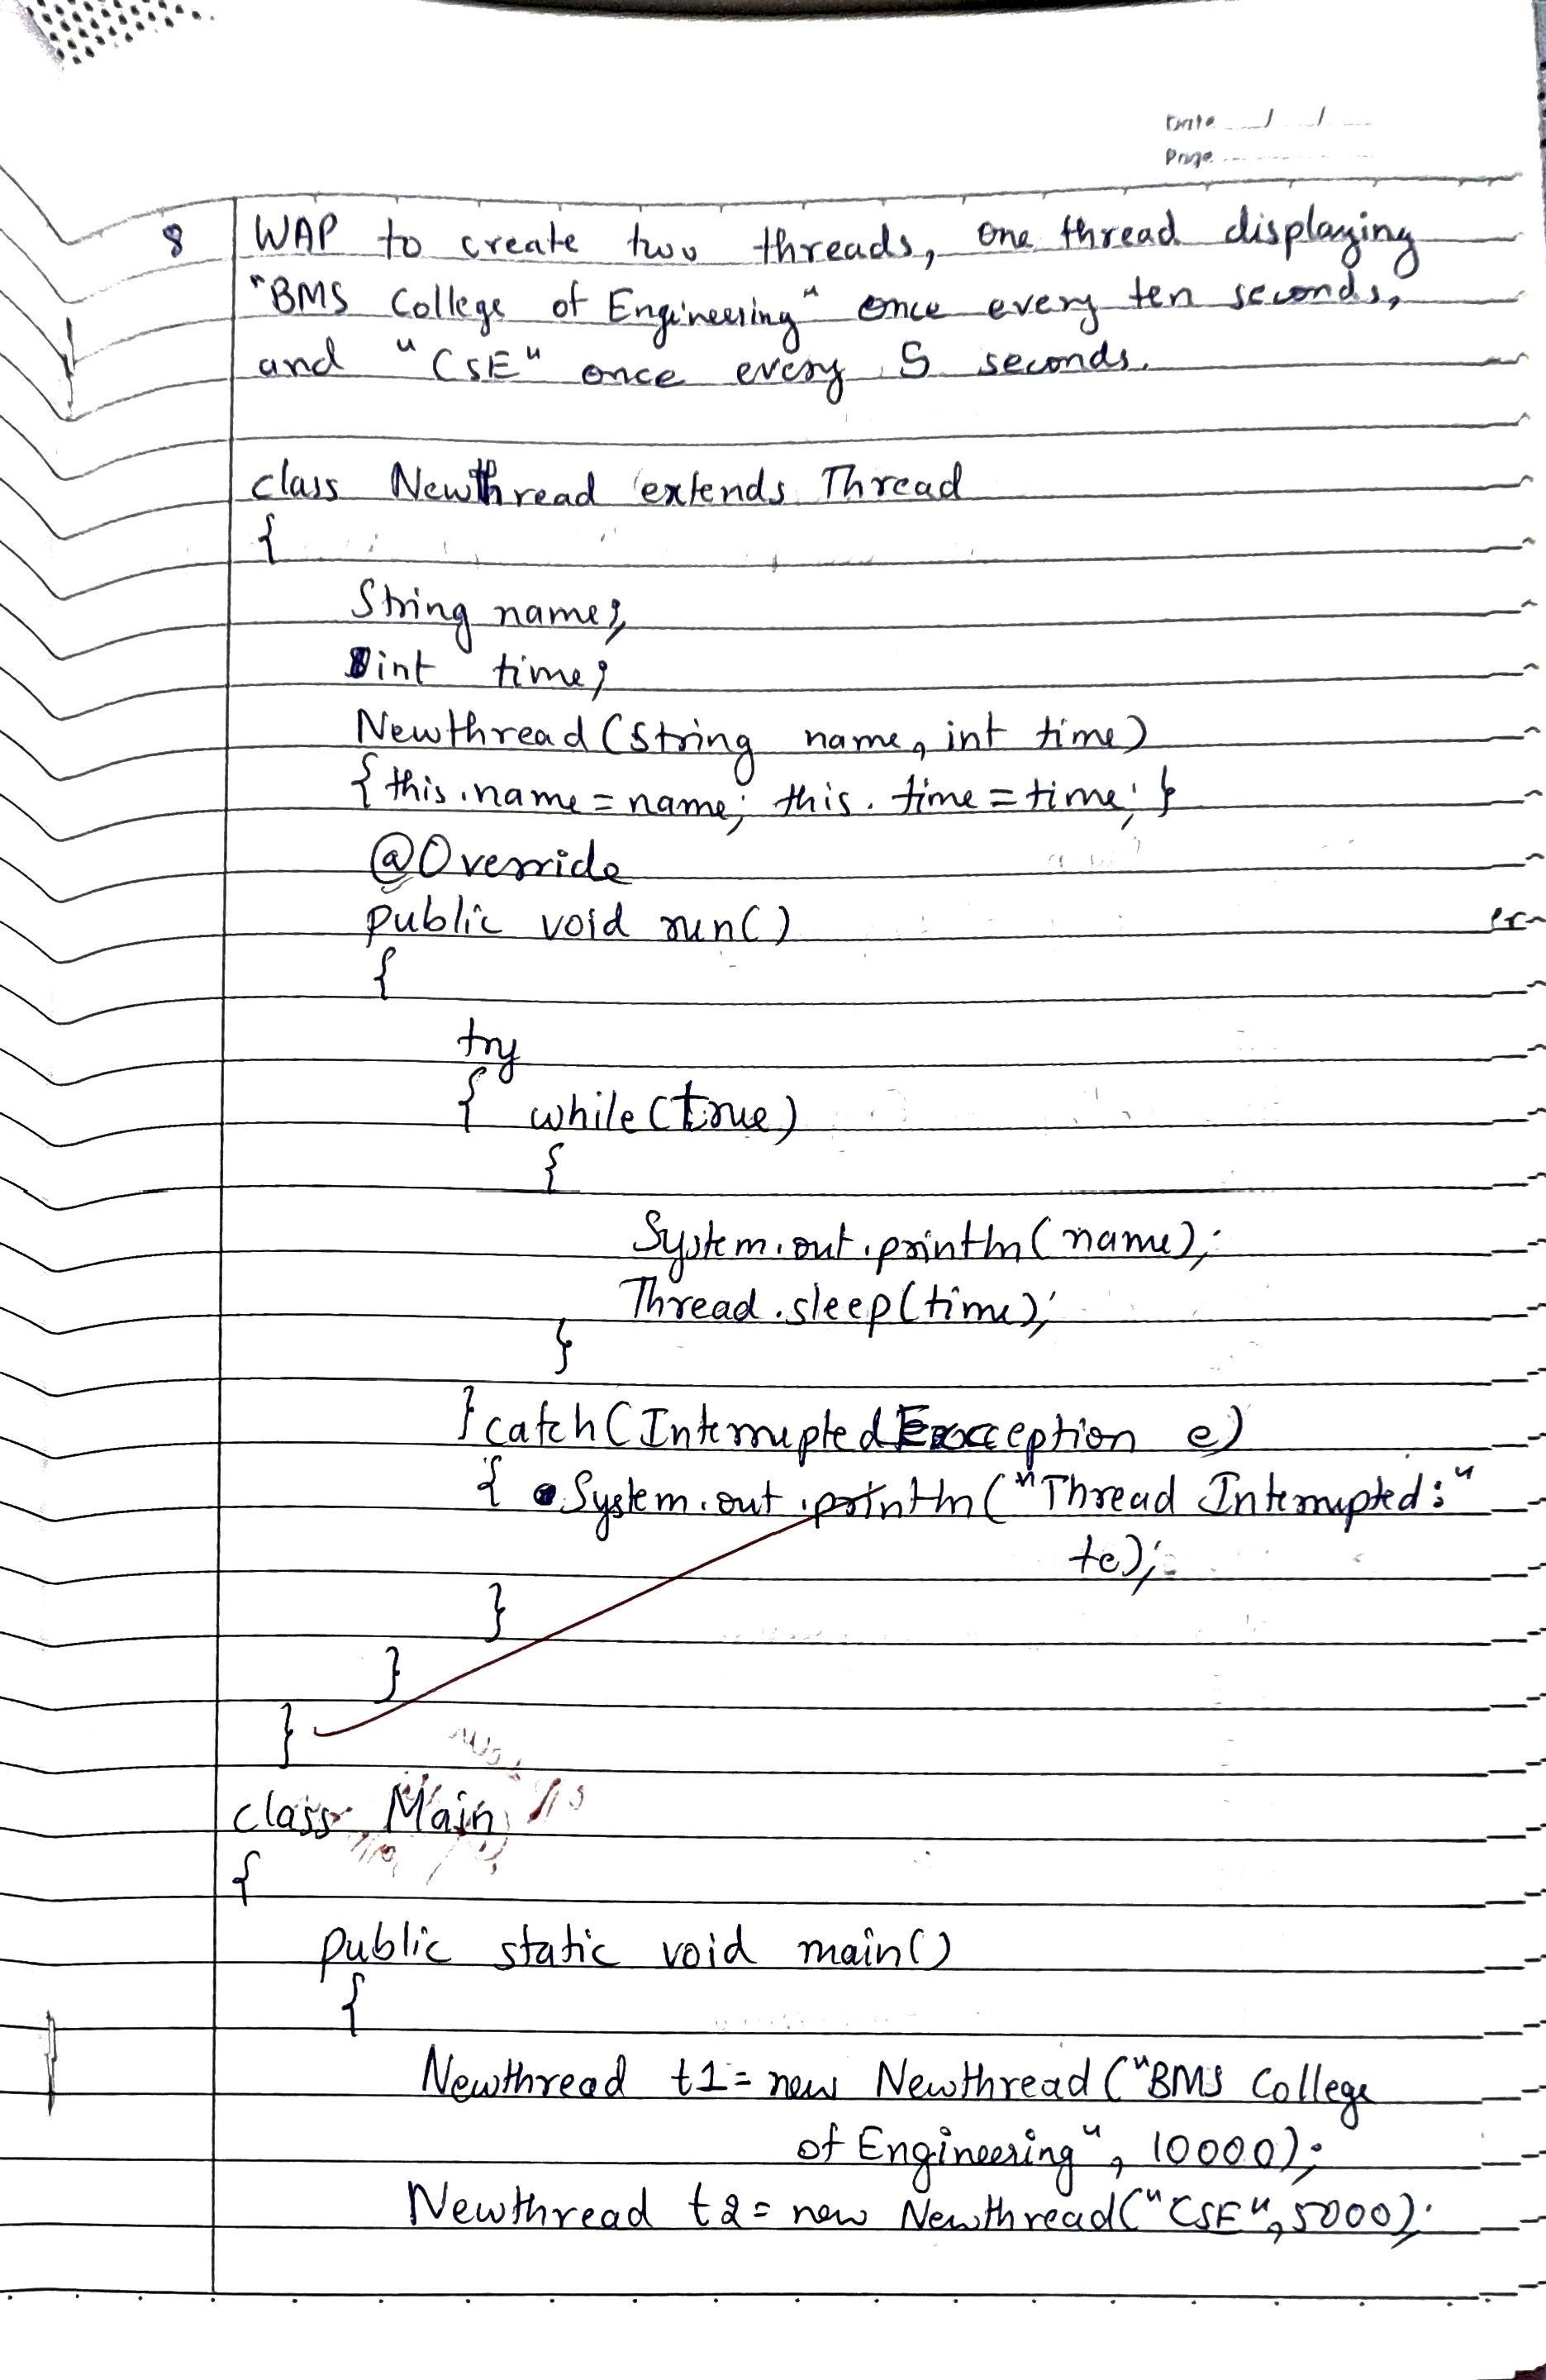 Date / /
Page
8 WAP to create two threads, one thread displaying
"BMS College of Engineering" once every ten seconds,
and "CSE" once every 5 seconds.
class Newthread extends Thread
{
String name;
int time;
Newthread (String name, int time)
{ this.name = name; this.time = time; }
@Override
public void run()
{
try
{ while (true)
{
System.out.println(name);
Thread.sleep(time);
}
} catch (InterruptedException e)
{ System.out.println("Thread Interrupted:"
+e);
}
}
}
class Main
{
public static void main()
{
Newthread t1 = new Newthread ("BMS College
of Engineering", 10000);
Newthread t2 = new Newthread("CSE", 5000);